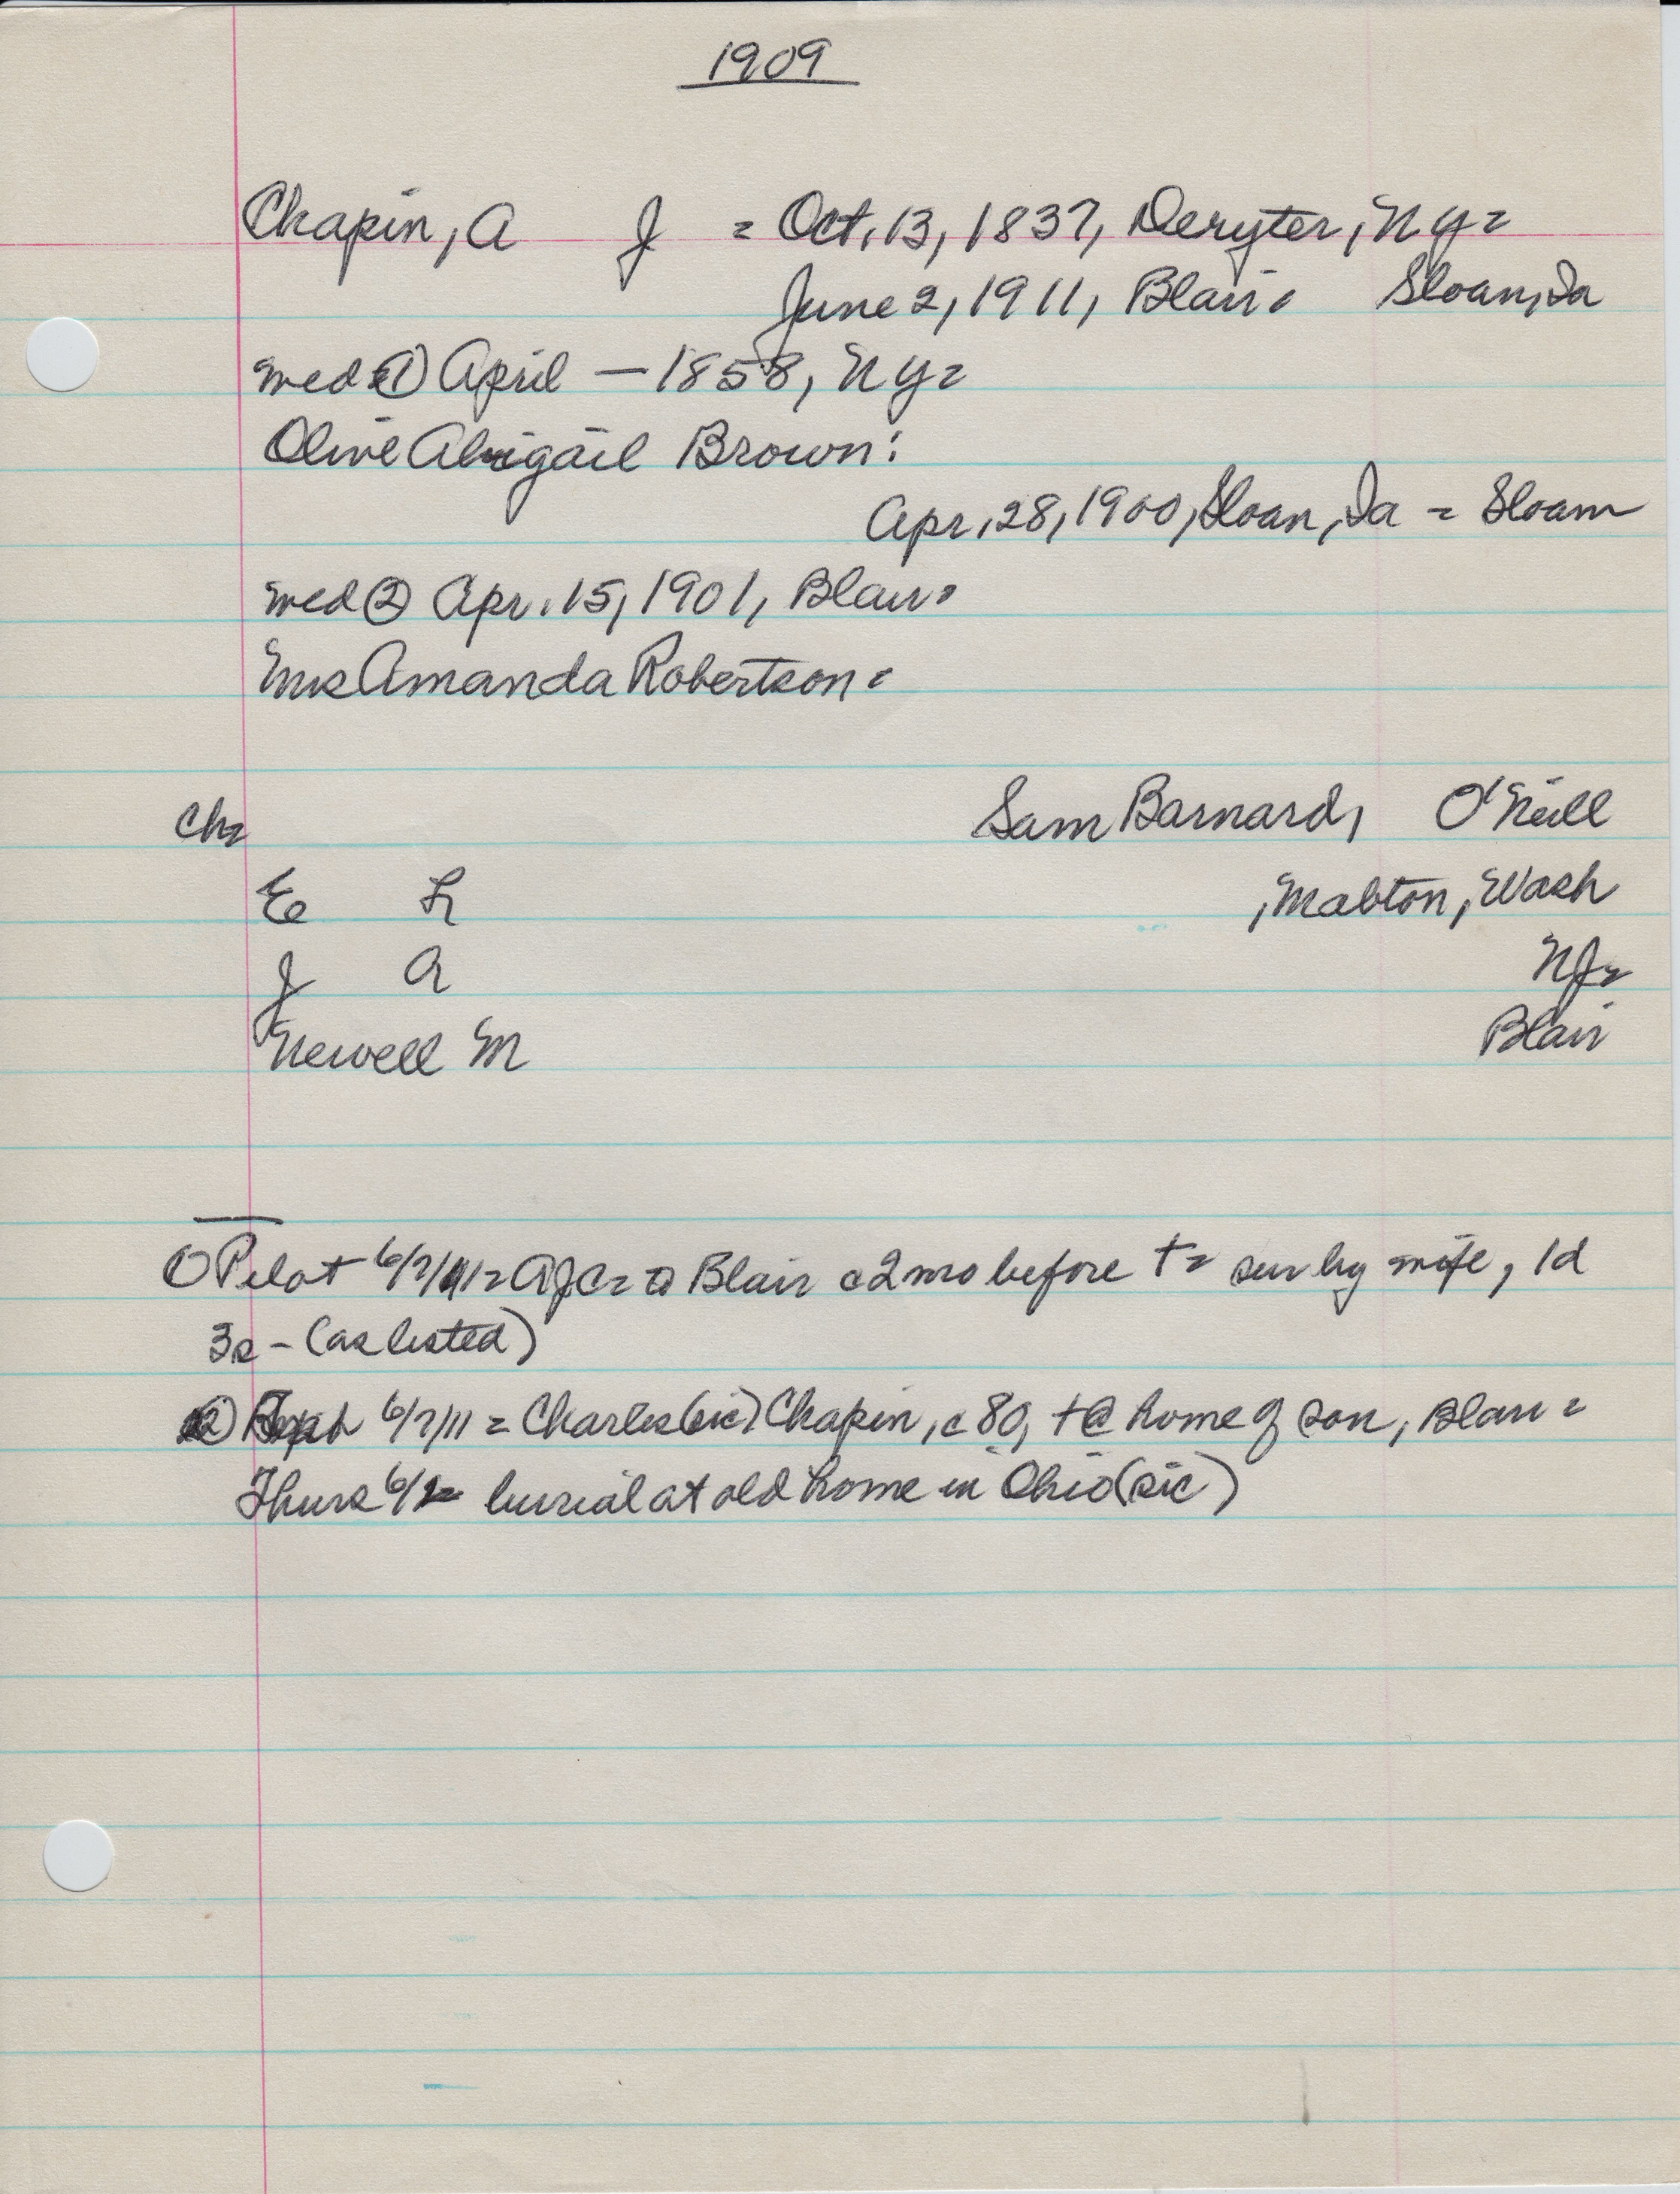 1909
Chapin, A J = Oct. 13, 1837, Deryter, N Y =
June 2, 1911, Blair = Sloan, Ia
med ① April — 1858, N Y =
Olive Abigail Brown :
Apr. 28, 1900, Sloan, Ia = Sloan
med ② Apr. 15, 1901, Blair =
Mrs Amanda Robertson =
Ch = Sam Barnard, O'Neill
E L , Mabton, Wash
J A N J =
Newell M Blair
① Pilot 6/7/11 = A J C = Blair c 2 mo before † = sur by wife, 1d
3s - (as listed)
② 6/7/11 = Charles (sic) Chapin, c 80, † @ home of son, Blair =
Thurs burial at old home in Ohio (sic)